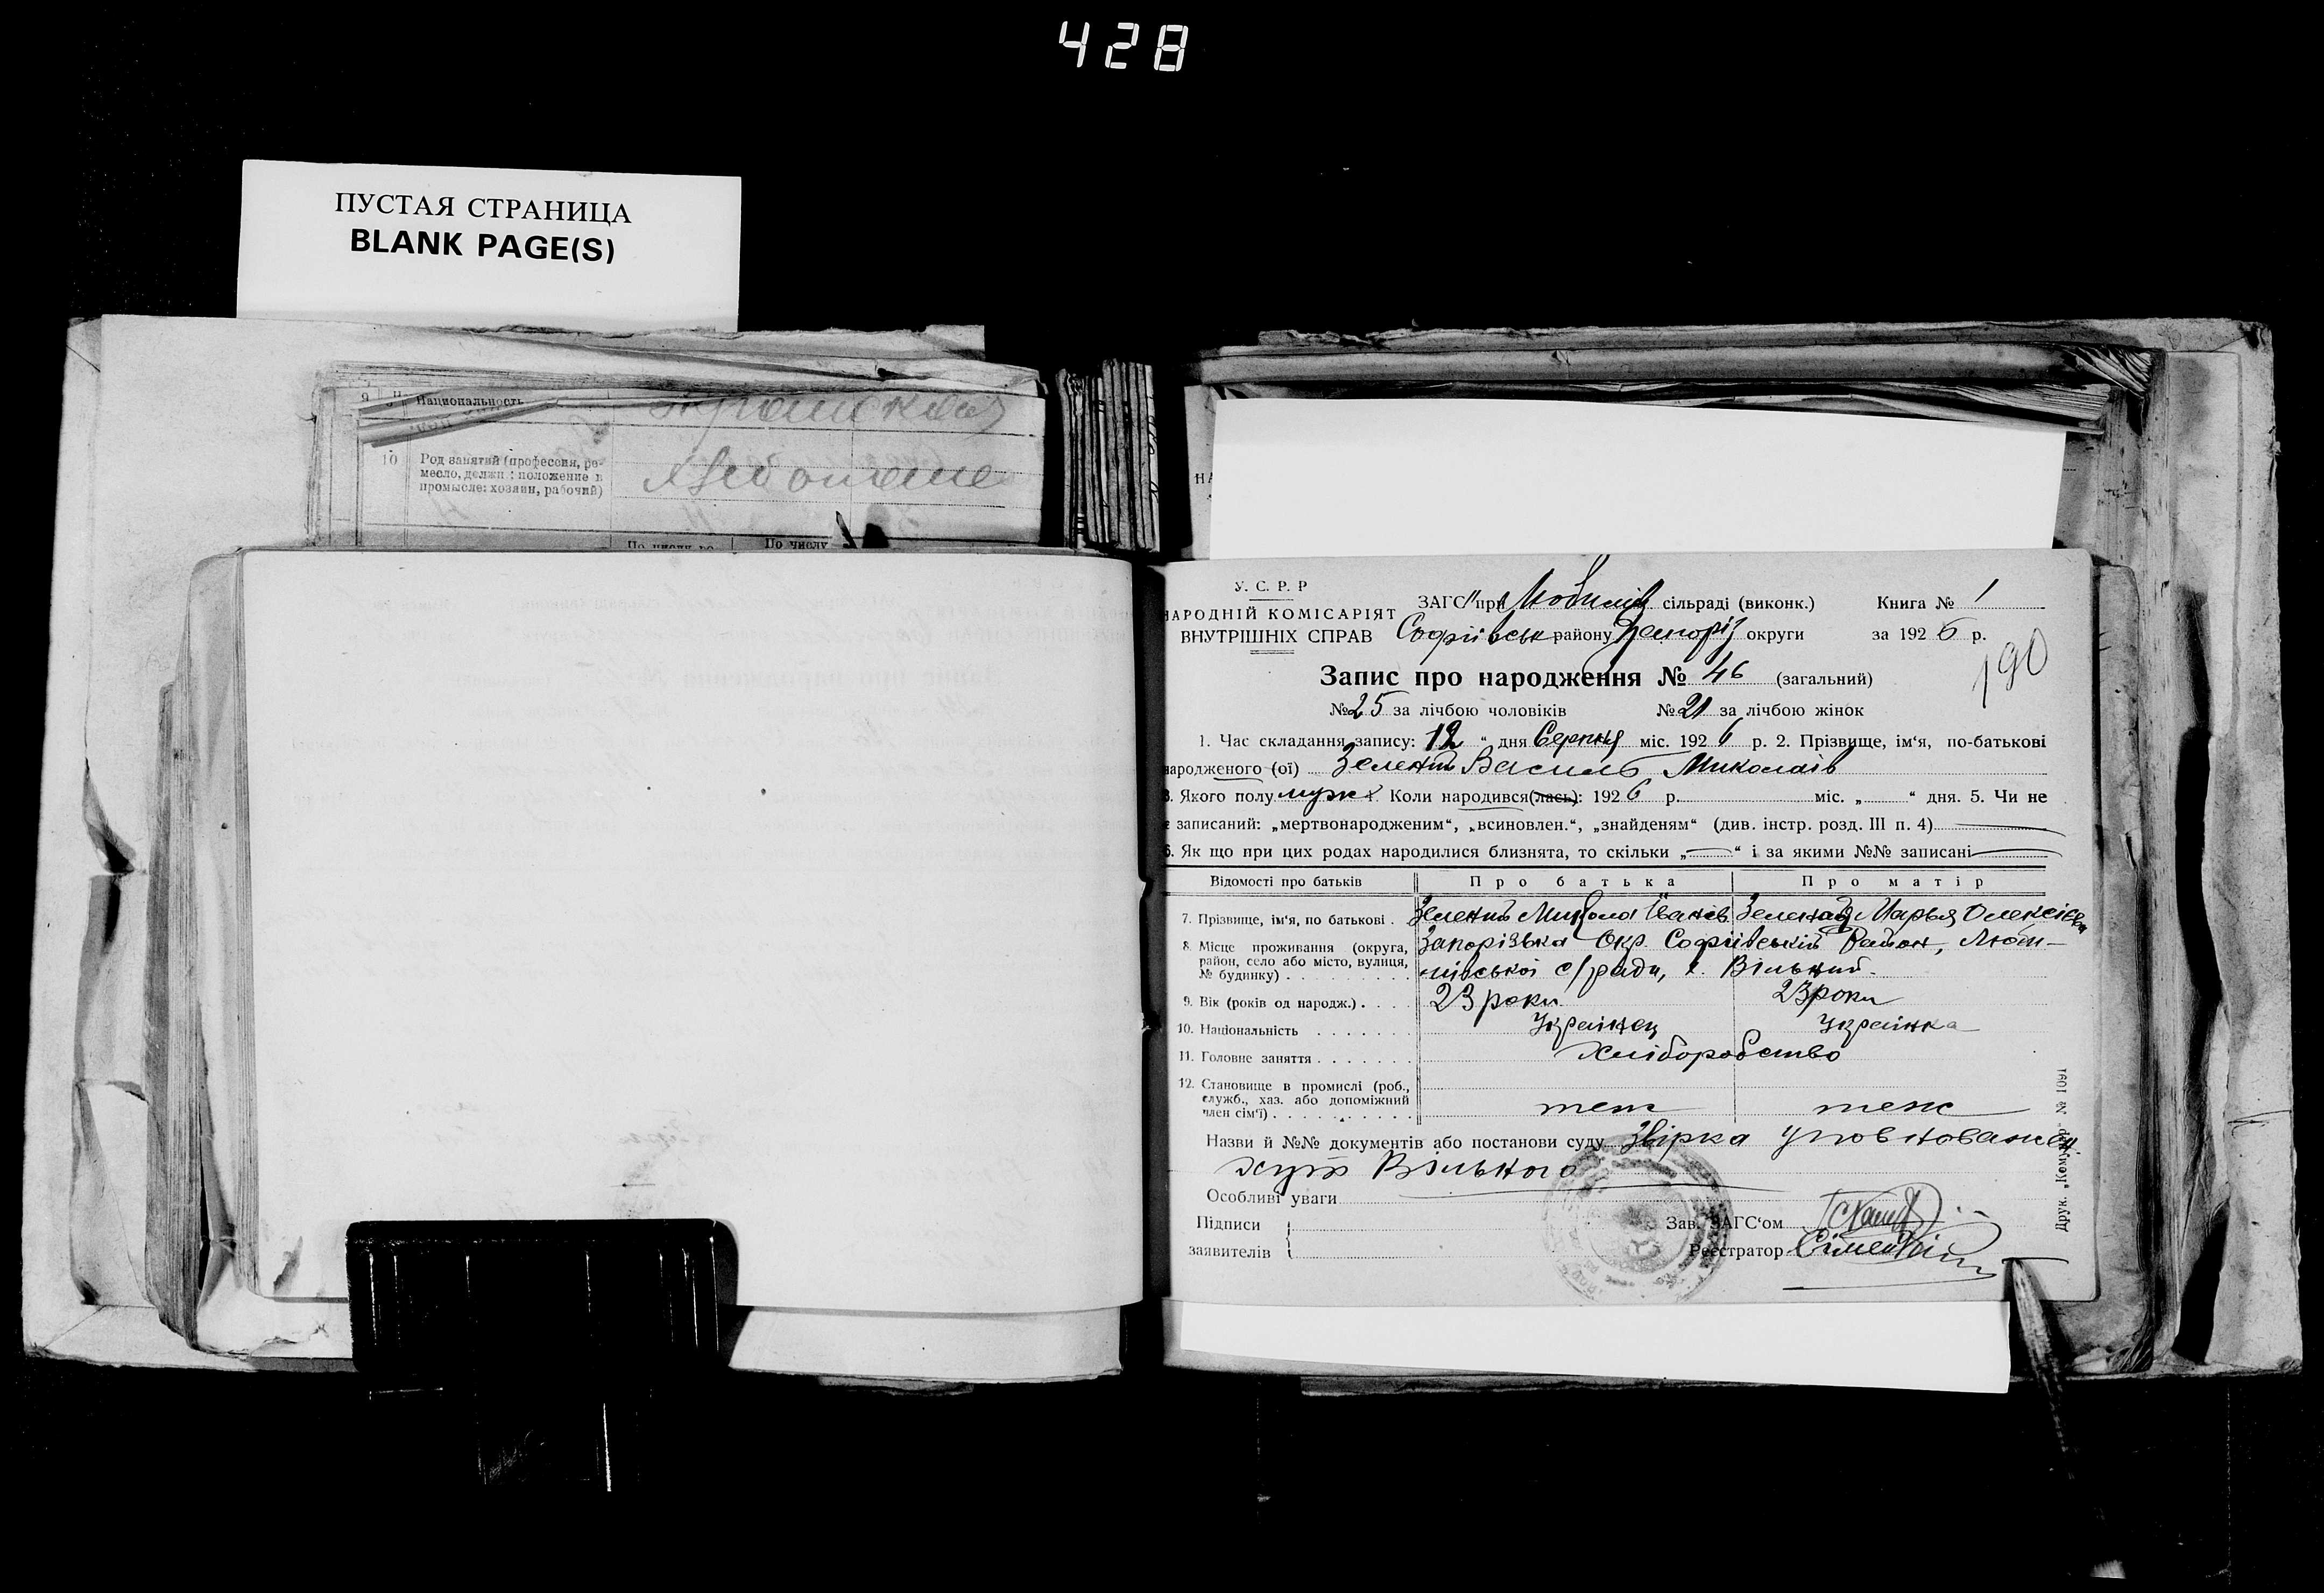 428
ПУСТАЯ СТРАНИЦА
BLANK PAGE(S)
9 Национальность
10 Род занятий (профессия, ре-
месло, должн.: положение в
промысле: хозяин, рабочий)
По числу
У. С. Р. Р
НАРОДНІЙ КОМІСАРІЯТ
ВНУТРІШНІХ СПРАВ
ЗАГС при сільраді (виконк.) Книга № 1
Софіївськ району Запоріз округи за 1926 р.
190
Запис про народження № 46 (загальний)
№ 25 за лічбою чоловіків № 21 за лічбою жінок
1. Час складання запису: 12 “ дня Серпня міс. 1926 р. 2. Прізвище, ім‘я, по-батькові
народженого (ої) Зелений Василь Миколаїв
3. Якого полу муж 4. Коли народився(лась): 1926 р. міс. „ “ дня. 5. Чи не
є записаний: „мертвонародженим“, „всиновлен.“, „знайденям“ (див. інстр. розд. III п. 4)
6. Як що при цих родах народилися близнята, то скільки „ — “ і за якими №№ записані —
Відомості про батьків Про батька Про матір
7. Прізвище, ім‘я, по батькові . Зелений Микола Іванів Зелена Марья Олексієва
8. Місце проживання (округа,
район, село або місто, вулиця,
№ будинку)
Запорізька Окр. Софіївський Район, Люби-
мівської с/ради, х. Вільний.
9. Вік (років од народж.) 23 роки 23 роки
10. Національність Українец Українка
11. Головне заняття Хліборобство
12. Становище в промислі (роб.,
служб., хаз. або допоміжний
член сім‘ї)
теж теж
Назви й №№ документів або постанови суду Звірка уповноважен
хут Вільного
Особливі уваги
Підписи
заявителів
Зав. ЗАГС‘ом
Реєстратор
Друк. „Комунар“ № 1091